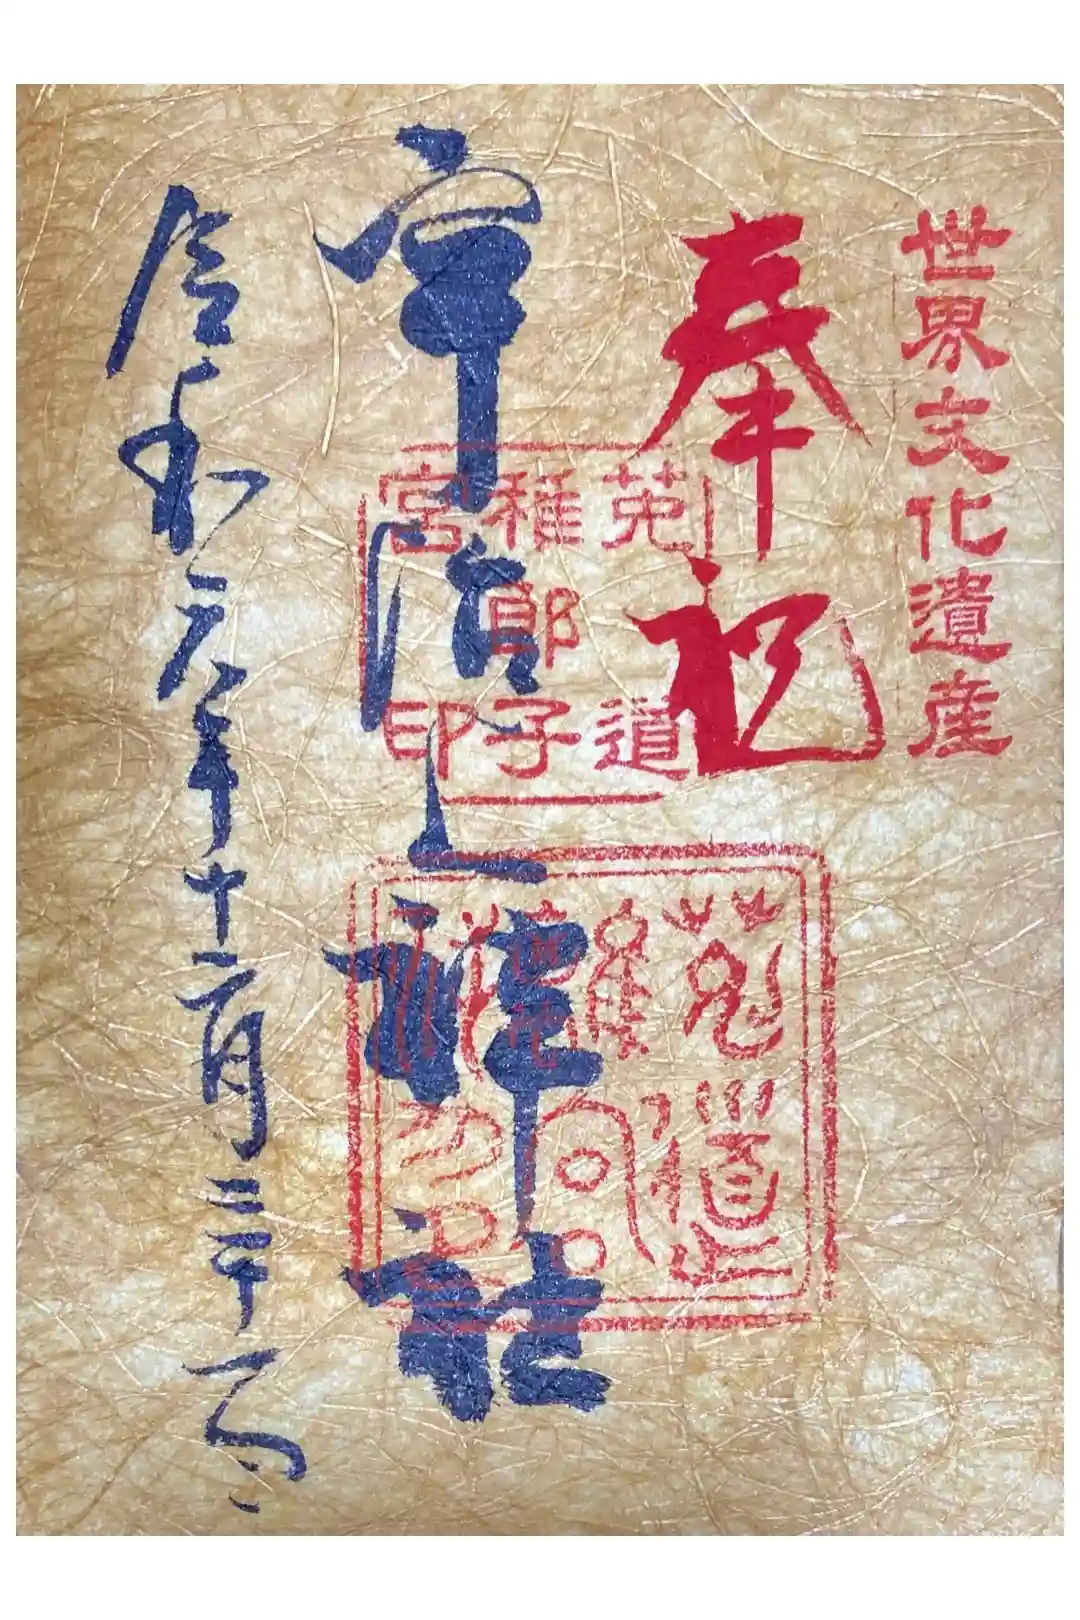 世界文化遺産
奉祝
菟道
稚郎子
宮印
宇治上神社
令和元年十二月三十一日